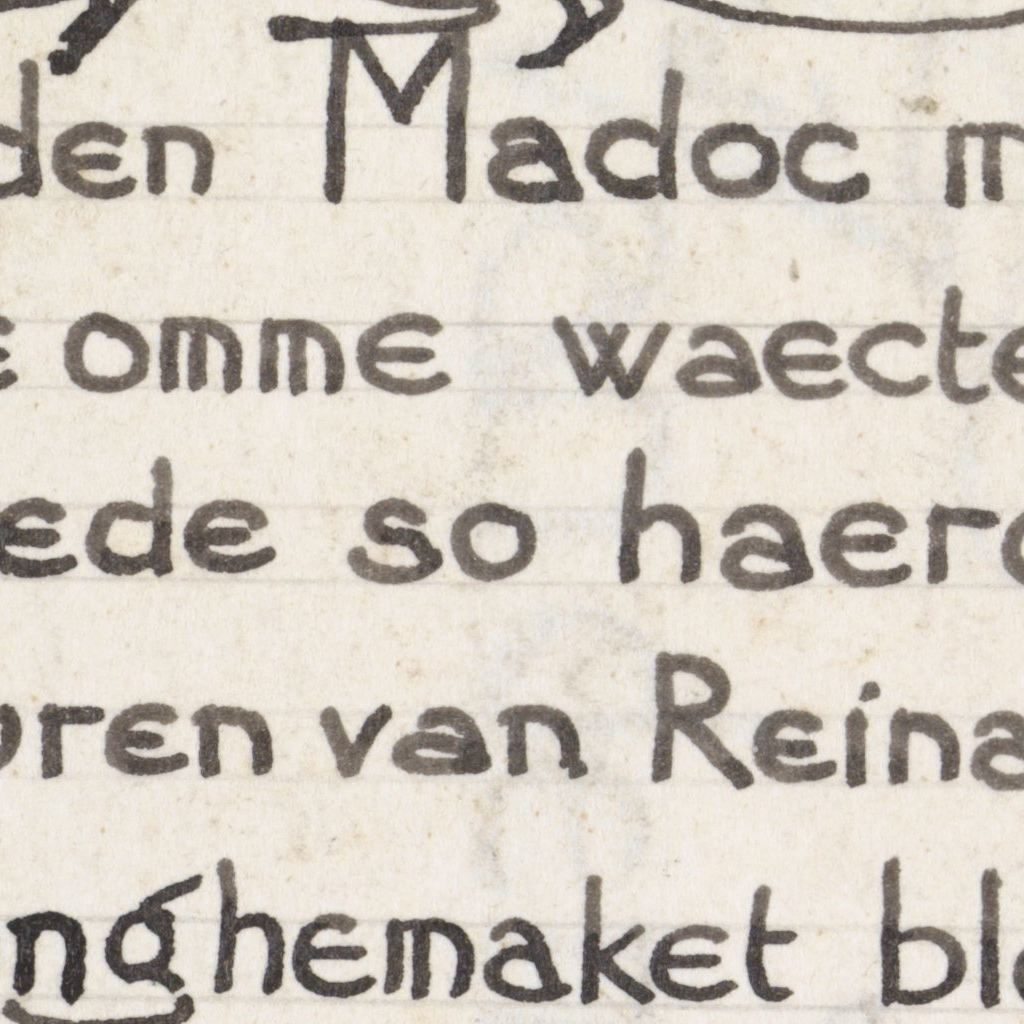 den Madoc m
e omme waecte
ede so haerd
uren van Reina
nghemaket ble